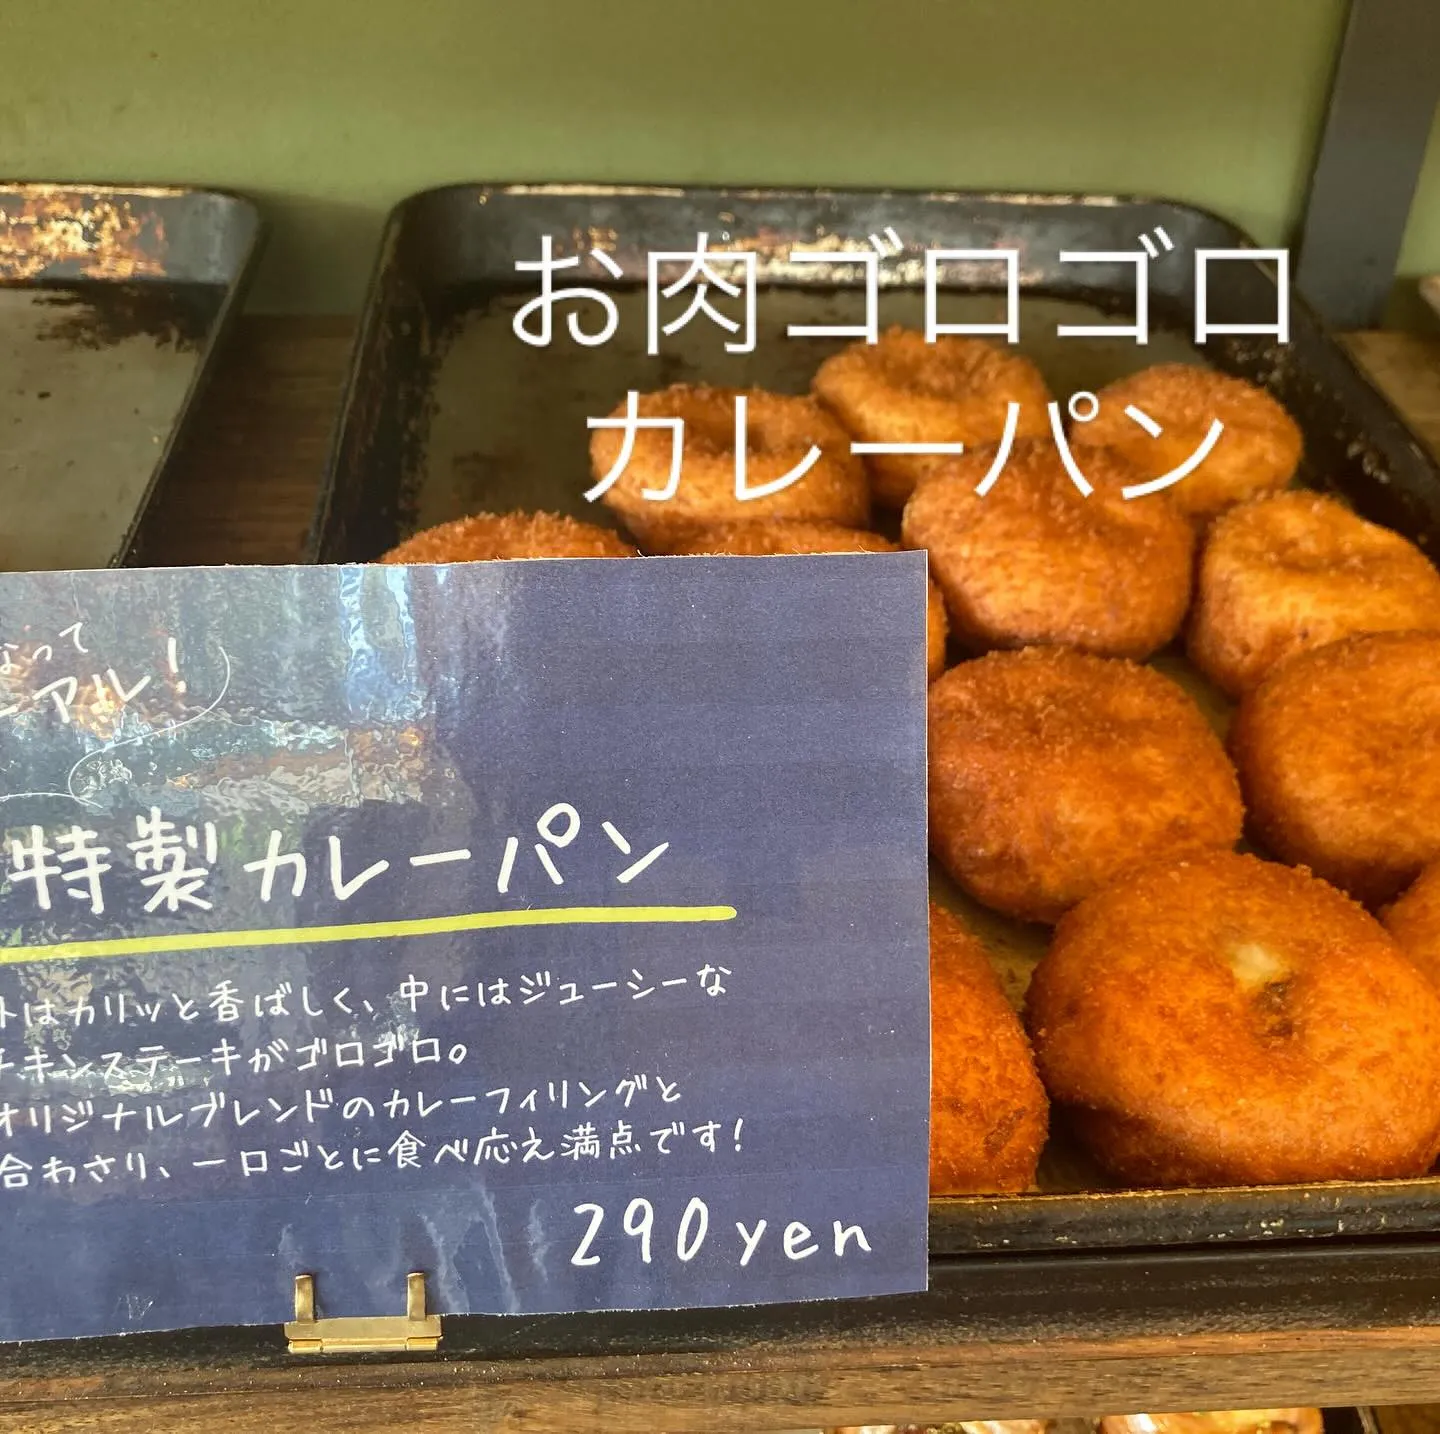 お肉ゴロゴロ
カレーパン
なって
ーアル!
特製カレーパン
外はカリッと香ばしく、中にはジューシーな
チキンステーキがゴロゴロ。
オリジナルブレンドのカレーフィリングと
合わさり、一口ごとに食べ応え満点です!
290yen